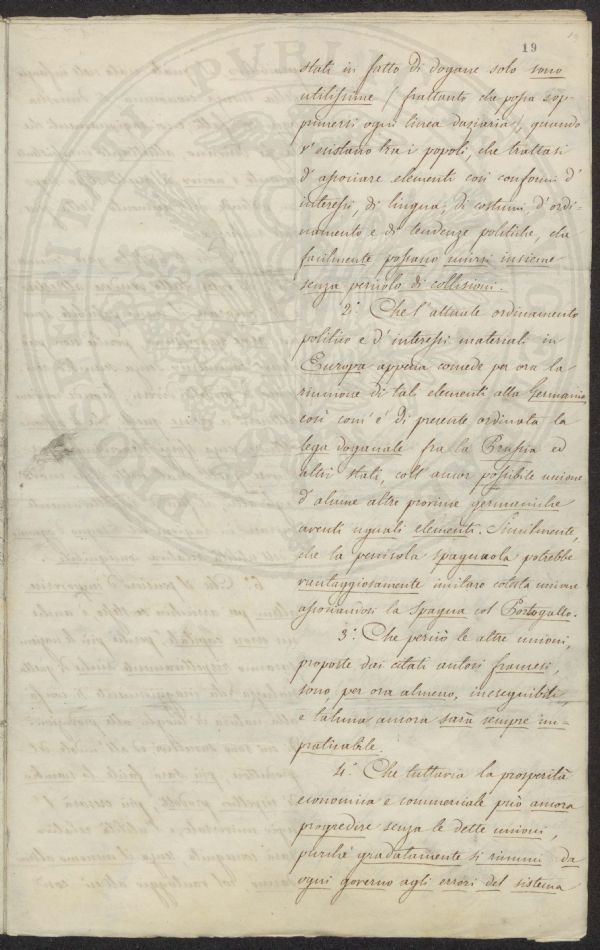 19
stati in fatto di dogane solo sono
utilissime (frattanto che possa sop-
primersi ogni linea daziaria), quando
v'esistano tra i popoli, che trattasi
d'associare elementi così conformi d'
interessi, di lingua, di costumi, d'ordi-
namento e di tendenze politiche, che
facilmente possano unirsi insieme
senza pericolo di collisioni.
2.° Che l'attuale ordinamento
politico e d'interessi materiali in
Europa appena concede per ora la
riunione di tali elementi alla Germania
così com'è di presente ordinata la
lega doganale fra la Prussia ed
altri stati, coll'ancor possibile unione
d'alcune altre provincie germaniche
aventi uguali elementi. Similmente,
che la penisola spagnuola potrebbe
vantaggiosamente imitare cotesta unione
associandosi la Spagna col Portogallo.
3.° Che perciò le altre unioni,
proposte dai citati autori francesi,
sono, per ora almeno, ineseguibili,
e taluna ancora sarà sempre im-
praticabile.
4.° Che tuttavia la prosperità
economica e commerciale può ancora
progredire senza le dette unioni,
purchè gradatamente si rinunci da
ogni governo agli errori del sistema